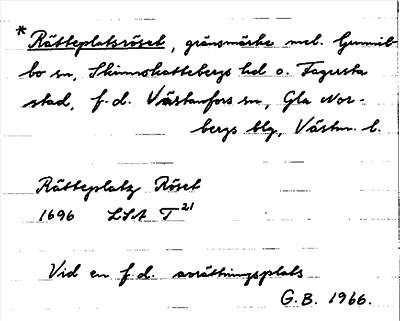 *Rätteplatsröset, gränsmärke mel. Gunnil-
bo sn, Skinnskattebergs hd o. Fagersta
stad, f.d. Västanfors sn, Gla Nor-
bergs blg, Västm. l.
Rätteplatz Röset
1696 LSA T 21
Vid en f.d. avrättningsplats
G.B. 1966.